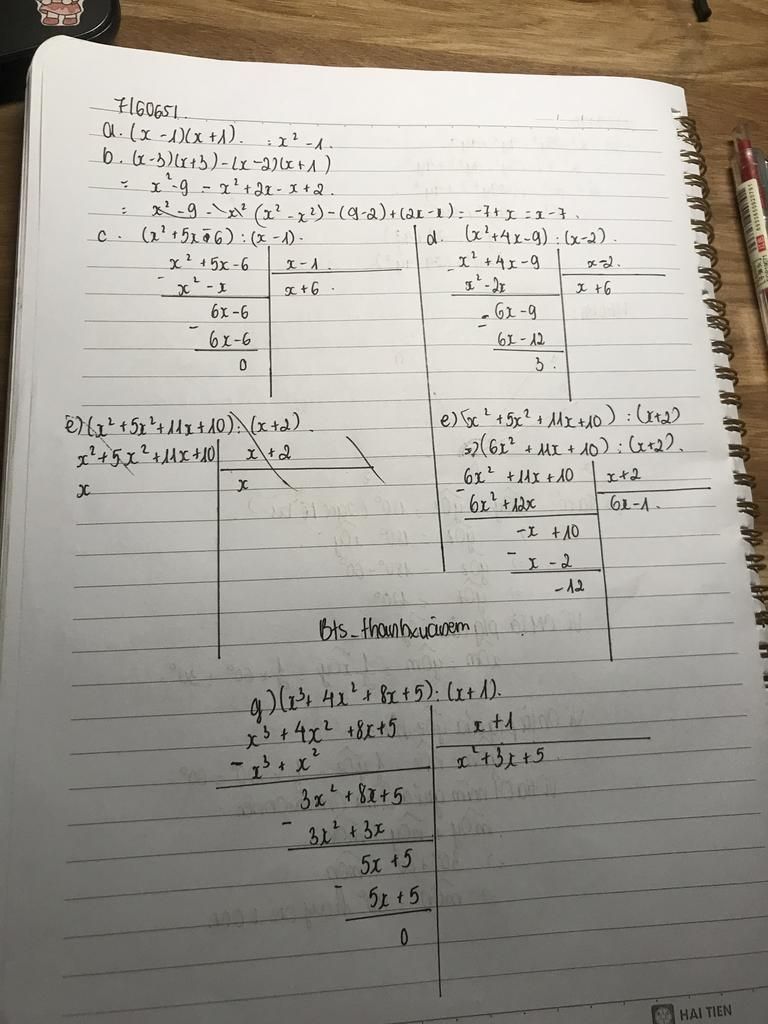 7160651
a. (x-1)(x+1). = x² - 1.
b. (x-3)(x+3) - (x-2)(x+1)
= x² - 9 - x² + 2x - x + 2.
= x² - 9 - x² (x² - x²) - (9-2) + (2x - x) = -7 + x = x - 7.
c. (x² + 5x - 6) : (x - 1).
x² + 5x - 6 x - 1.
- x² - x x + 6.
6x - 6
- 6x - 6
0
d. (x² + 4x - 9) : (x - 2).
- x² + 4x - 9 x - 2.
x² - 2x x + 6
- 6x - 9
6x - 12
3.
e) (x² + 5x² + 11x + 10) : (x + 2).
x² + 5x² + 11x + 10 x + 2
x x
e) (x² + 5x² + 11x + 10) : (x+2)
=> (6x² + 11x + 10) : (x+2).
- 6x² + 11x + 10 x + 2
6x² + 12x 6x - 1.
-x + 10
- x - 2
-12
Bts_thanhxuânem
g) (x³ + 4x² + 8x + 5) : (x + 1).
x³ + 4x² + 8x + 5 x + 1
- x³ + x² x² + 3x + 5
3x² + 8x + 5
- 3x² + 3x
5x + 5
- 5x + 5
0
HAI TIEN